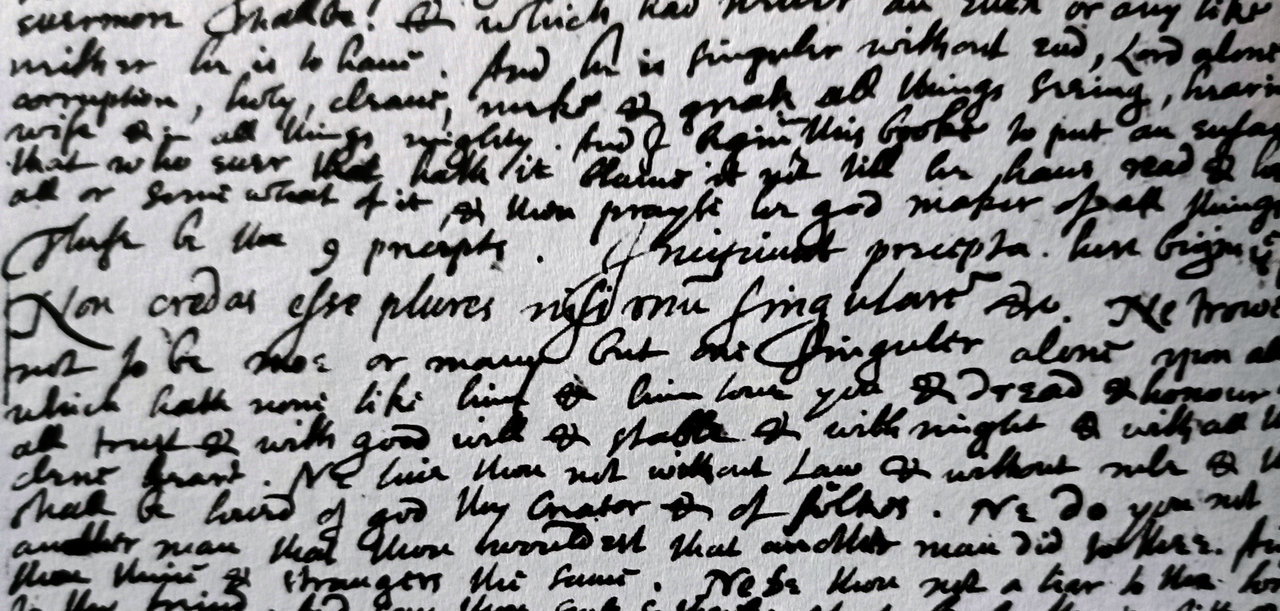 euermore shalbe! & which had neuer an euen or any like
neither he is to haue. And he is singuler without end, Lord alone
corruption, holy, cleane, meeke & great all things seeing, hearin
wise & in all things mighty. And I begin this booke to put an
that who euer that hath it blame it not till he haue read &
all or some what of it, & then prayse he god maker of all things
These be the 9 precepts. Incipiunt precepta. here biginn
Non credas esse plures nisi vnu singulare &c. Ne trowe
not to be moe or many but one singuler alone vpon al
which hath none like him & him loue you & dread & honour
all trust & with good will & stable & with might & with all
clene heart. Ne liue thou not without Law & without rule &
shalt be loued of god thy Creator & of folkes. Ne do you not
another man that thou wouldest that another man did to thee.
thine & strangers the same. Ne be thou not a liar to the